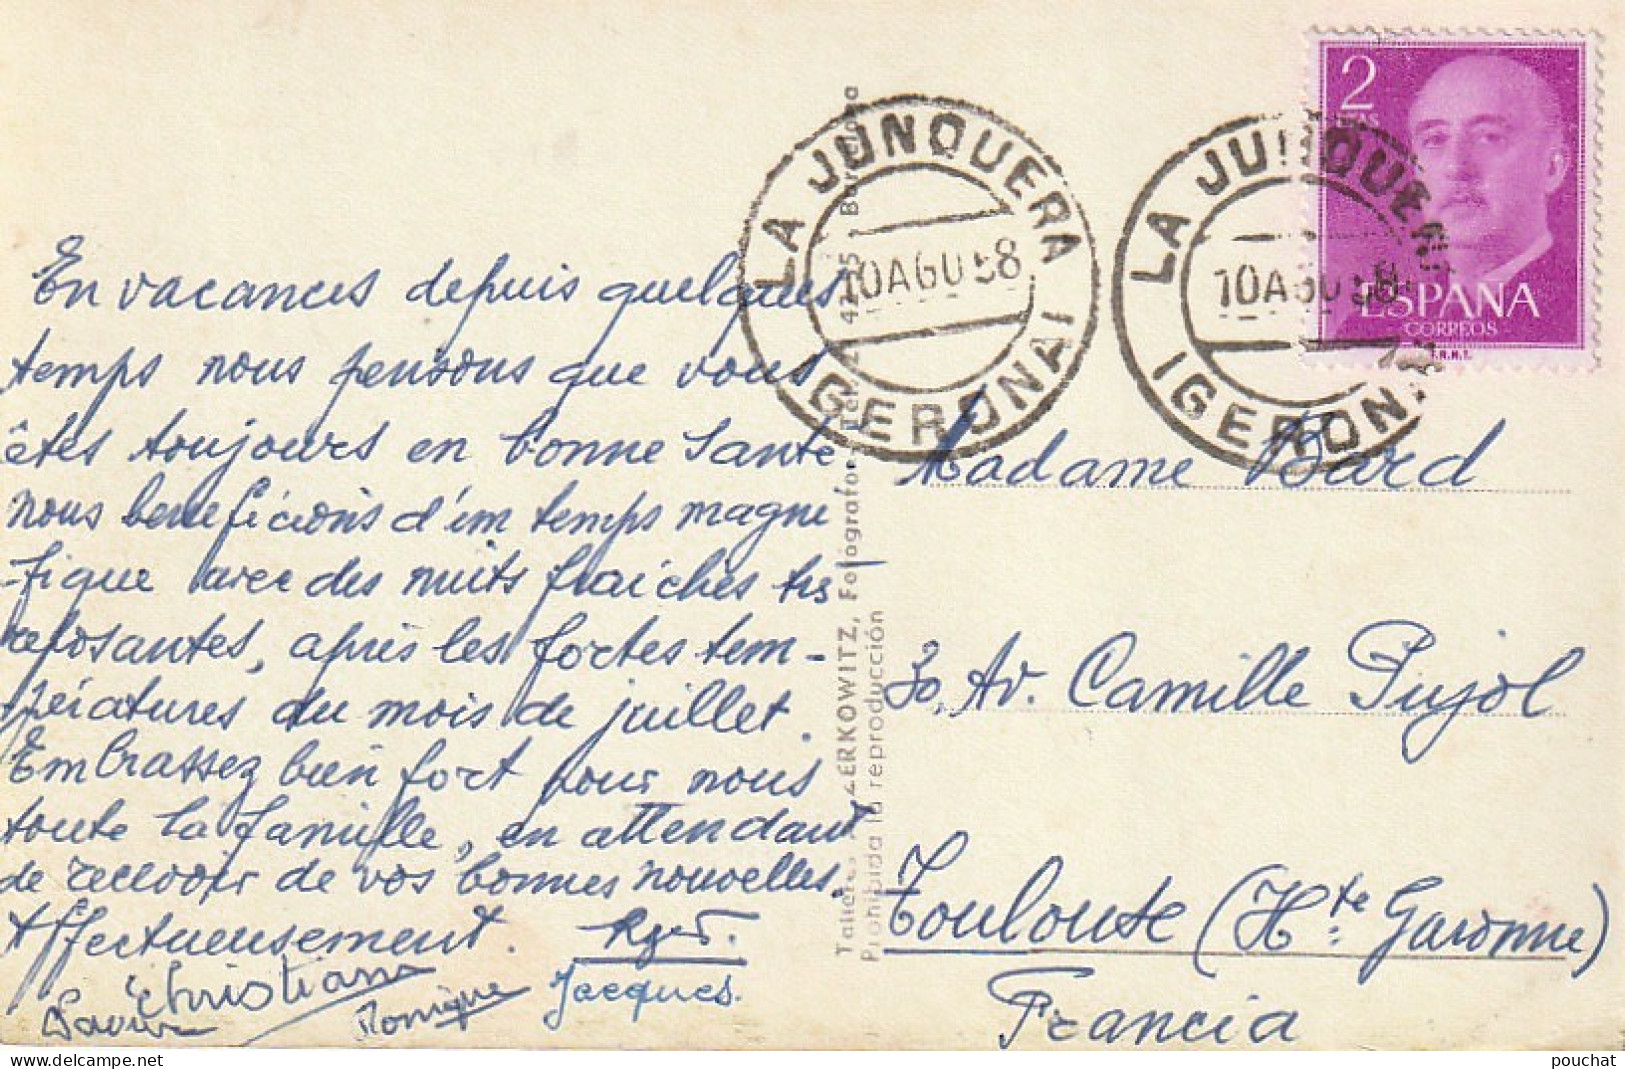 En vacances depuis quelques
temps nous pensons que vous
êtes toujours en bonne santé
nous beneficions d'un temps magni
-fique avec des nuits fraîches très
reposantes, après les fortes tem-
pératures du mois de juillet.
Embrassez bien fort pour nous
toute la famille, en attendant
de recevoir de vos bonnes nouvelles.
Affectueusement. Roger.
Christiane
Monique
Jacques.
LA JUNQUERA
10 AGO 58
(GERONA)
LA JUNQUERA
10 AGO 58
(GERONA)
2
PTAS
ESPAÑA
CORREOS
F.N.M.T.
Talleres ZERKOWITZ, Fotógrafo - Tel. Barcelona
Prohibida la reproducción
Madame Bard
30, Av. Camille Pujol
Toulouse (Hte Garonne)
Francia
pouchat